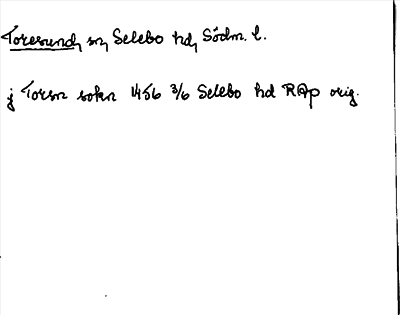 Toresund, sn, Selebo hd, Södm. l.
j Torsn sokn 1456 3/6 Selebo hd RAp orig.